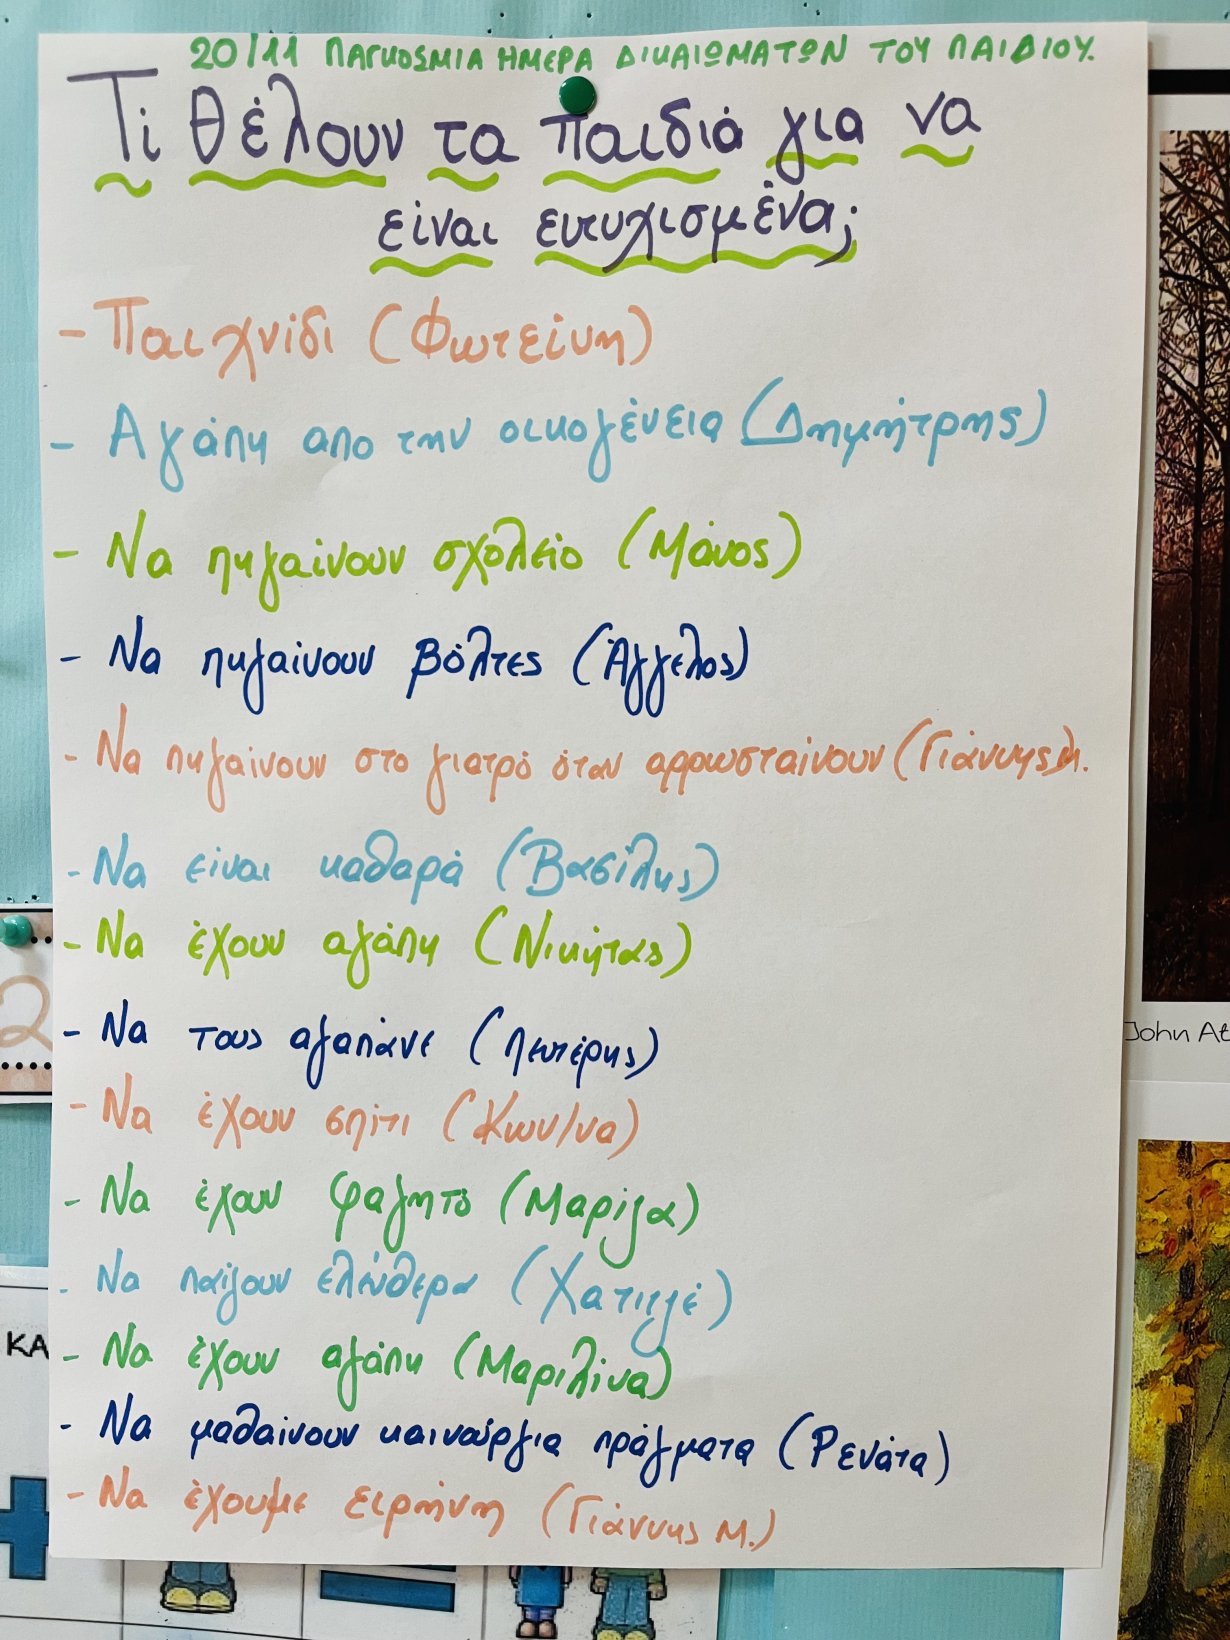 20/11 ΠΑΓΚΟΣΜΙΑ ΗΜΕΡΑ ΔΙΚΑΙΩΜΑΤΩΝ ΤΟΥ ΠΑΙΔΙΟΥ.
Τί θέλουν τα παιδιά για να
είναι ευτυχισμένα;
- Παιχνίδι (Φωτείνη)
- Αγάπη απο την οικογένεια (Δημήτρης)
- Να πηγαίνουν σχολείο (Μάνος)
- Να πηγαίνουν βόλτες (Άγγελος)
- Να πηγαίνουν στο γιατρό όταν αρρωσταίνουν (Γιάννης Μ.
- Να είναι καθαρά (Βασίλης)
- Να έχουν αγάπη (Νικήτας)
- Να τους αγαπάνε (Λευτέρης)
- Να έχουν σπίτι (Κων/να)
- Να έχουν φαγητό (Μαρίζα)
- Να παίζουν ελεύθερα (Χατιτζέ)
- Να έχουν αγάπη (Μαριλίνα)
- Να μαθαίνουν καινούργια πράγματα (Ρενάτα)
- Να έχουμε ειρήνη (Γιάννης Μ.)
John At
2
ΚΑ